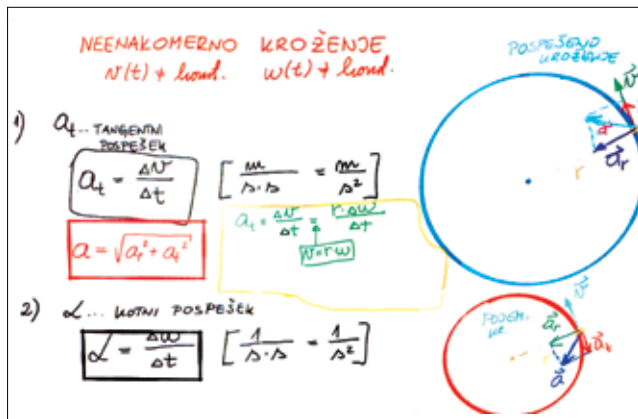 NEENAKOMERNO KROŽENJE
v(t) ≠ konst. ω(t) ≠ konst.
1) a_t ... TANGENTNI
POSPEŠEK
a_t = Δv/Δt [m/s·s = m/s²]
a = √(a_r² + a_t²)
a_t = Δv/Δt = r·Δω/Δt
v=rω
2) α ... KOTNI POSPEŠEK
α = Δω/Δt [1/s·s = 1/s²]
POSPEŠENO
KROŽENJE
v
a
a_r
r
v
a_r
a_t
a